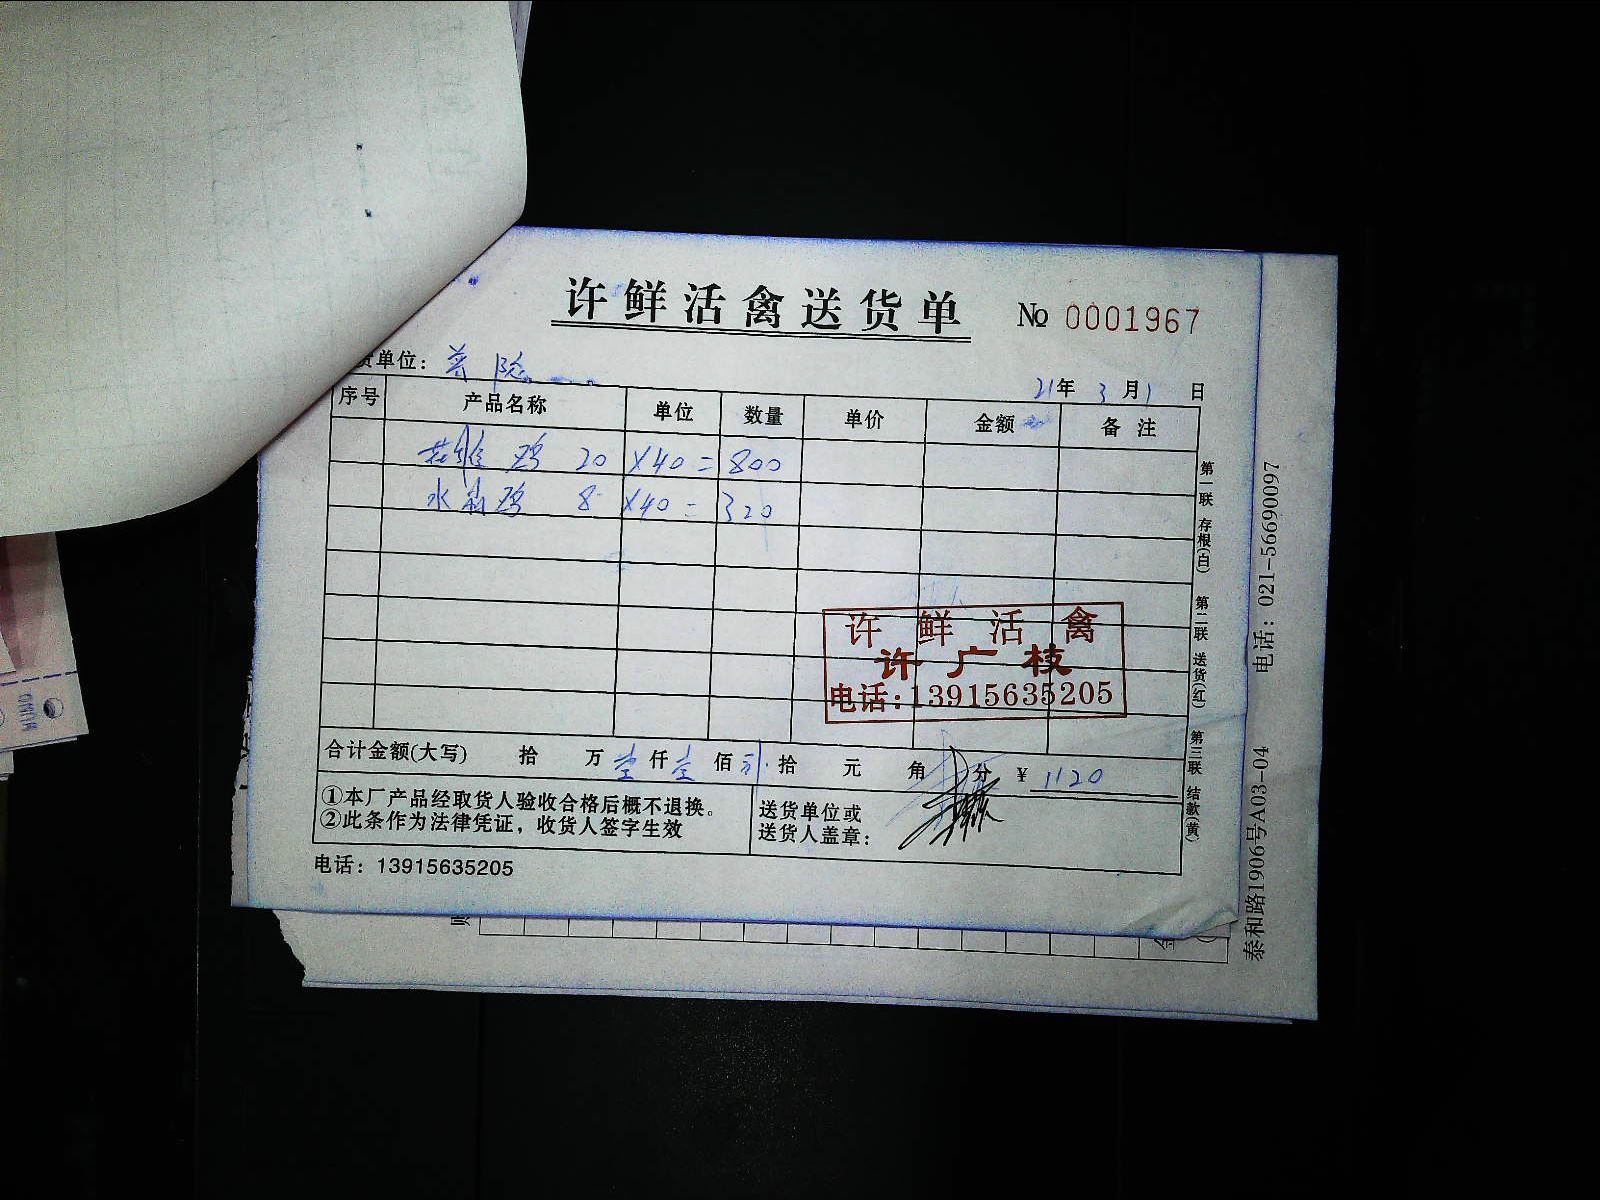 许鲜活禽送货单 No 0001967
货单位：普陀
21年 3月1日
序号 产品名称 单位 数量 单价 金额 备注
鸡 20 X40=800
水 鸡 8 X40=320
许鲜活禽
许广枝
电话：13915635205
合计金额(大写) 拾 万壹仟壹佰贰拾 元 角 分 ¥ 1120
①本厂产品经取货人验收合格后概不退换。
②此条作为法律凭证，收货人签字生效
送货单位或
送货人盖章：
电话：13915635205
第一联 存根(白) 第二联 送货(红) 第三联 结款(黄)
泰和路1906号A03-04 电话：021-56690097